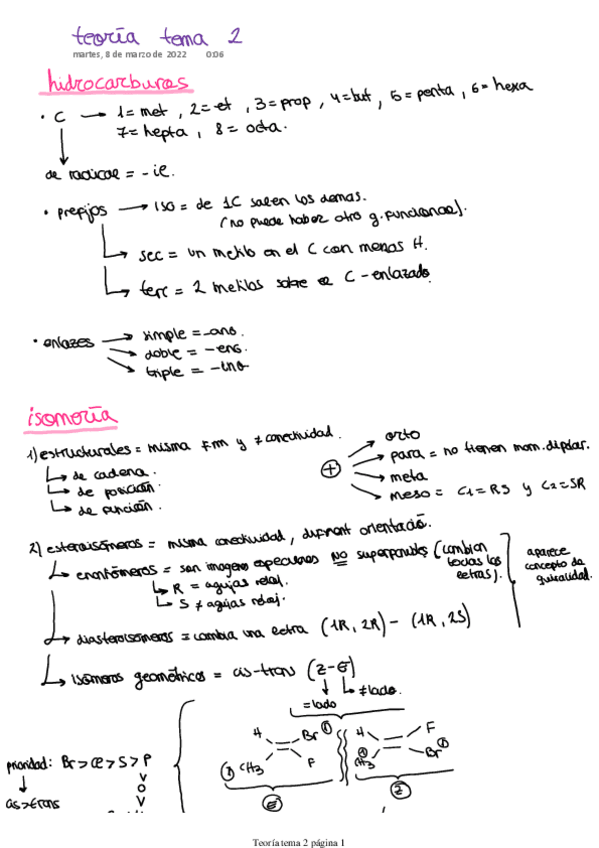 teoría tema 2
martes, 8 de marzo de 2022 0:06
hidrocarburos
· C → 1= met , 2= et , 3= prop , 4= but , 5= penta , 6= hexa
7= hepta , 8= octa.
de radical = -il.
· prefijos → ISO = de 1C salen los demas.
(no puede haber otro g. funcional).
sec = un metilo en el C con menos H.
terc = 2 metilos sobre el C-enlazado.
· enlazes → simple = -ano.
doble = -eno.
triple = -ino
isomería
1) estructurales = misma F.m y ≠ conectividad.
de cadena.
de posición.
de función.
+ → orto
para = no tienen mom. dipolar.
meta
meso = C1=RS y C2=SR
2) estereoisómeros = misma conectividad, diferent orientació.
enantiómeros = son imagenes especulares NO superponibles (cambian todas las letras).
R = agujas reloj.
S ≠ agujas reloj.
aparece
concepto de
quiralidad.
diasteroisómeros = cambia una letra (1R, 2R) - (1R, 2S)
isómeros geométricos = cis-trans (Z-E)
= lado
≠ lado.
prioridad: Br > Cl > S > P
v
O
v
cis>trans
H Br ①
① CH3 F
E
H F
② CH3 Br ①
Z
Teoría tema 2 página 1